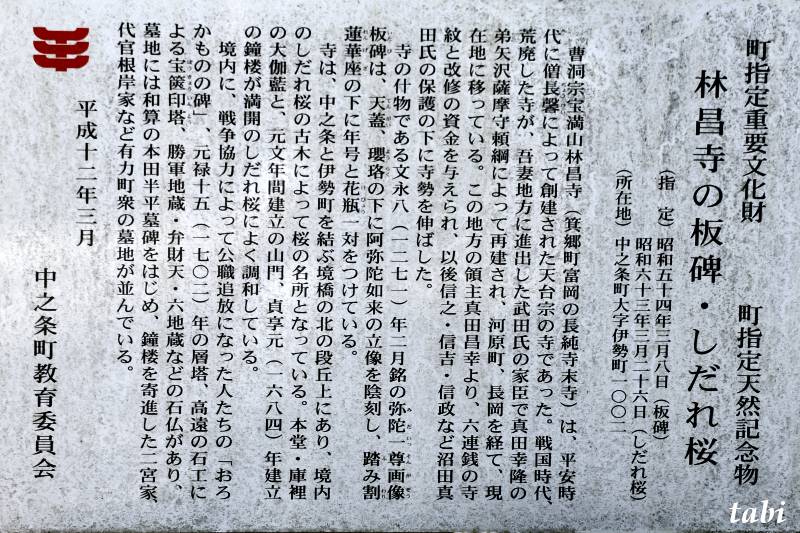 町指定重要文化財　町指定天然記念物
林昌寺の板碑・しだれ桜
（指　定）昭和五十四年三月八日（板碑）
昭和六十三年三月二十六日（しだれ桜）
（所在地）中之条町大字伊勢町一〇〇二
曹洞宗宝満山林昌寺（箕郷町富岡の長純寺末寺）は、平安時
代に僧長馨によって創建された天台宗の寺であった。戦国時代、
荒廃した寺が、吾妻地方に進出した武田氏の家臣で真田幸隆の
弟矢沢薩摩守頼綱によって再建され、河原町、長岡を経て、現
在地に移っている。この地方の領主真田昌幸より、六連銭の寺
紋と改修の資金を与えられ、以後信之・信吉・信政など沼田真
田氏の保護の下に寺勢を伸ばした。
寺の什物である文永八（一二七一）年二月銘の弥陀一尊画像
板碑は、天蓋、瓔珞の下に阿弥陀如来の立像を陰刻し、踏み割
蓮華座の下に年号と花瓶一対をつけている。
寺は、中之条と伊勢町を結ぶ境橋の北の段丘上にあり、境内
のしだれ桜の古木によって桜の名所となっている。本堂・庫裡
の大伽藍と、元文年間建立の山門、貞享元（一六八四）年建立
の鐘楼が満開のしだれ桜によく調和している。
境内に、戦争協力によって公職追放になった人たちの「おろ
かものの碑」、元禄十五（一七〇二）年の層塔、高遠の石工に
よる宝篋印塔、勝軍地蔵・弁財天・六地蔵などの石仏があり、
墓地には和算の本田半平墓碑をはじめ、鐘楼を寄進した二宮家、
代官根岸家など有力町衆の墓地が並んでいる。
平成十二年三月
中之条町教育委員会
tabi